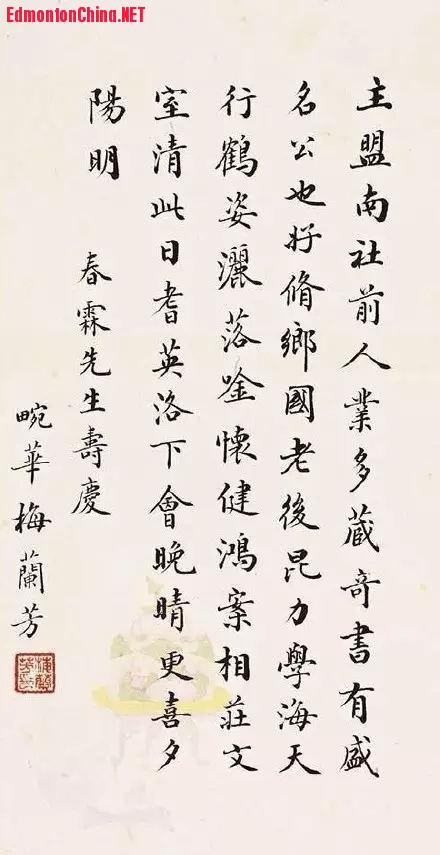 EdmontonChina.NET
主盟南社前人業多藏奇書有盛
名公也好脩鄉國老後昆力學海天
行鶴姿灑落唫懷健鴻案相莊文
室清此日耆英洛下會晚晴更喜夕
陽明
春霖先生壽慶
畹華梅蘭芳